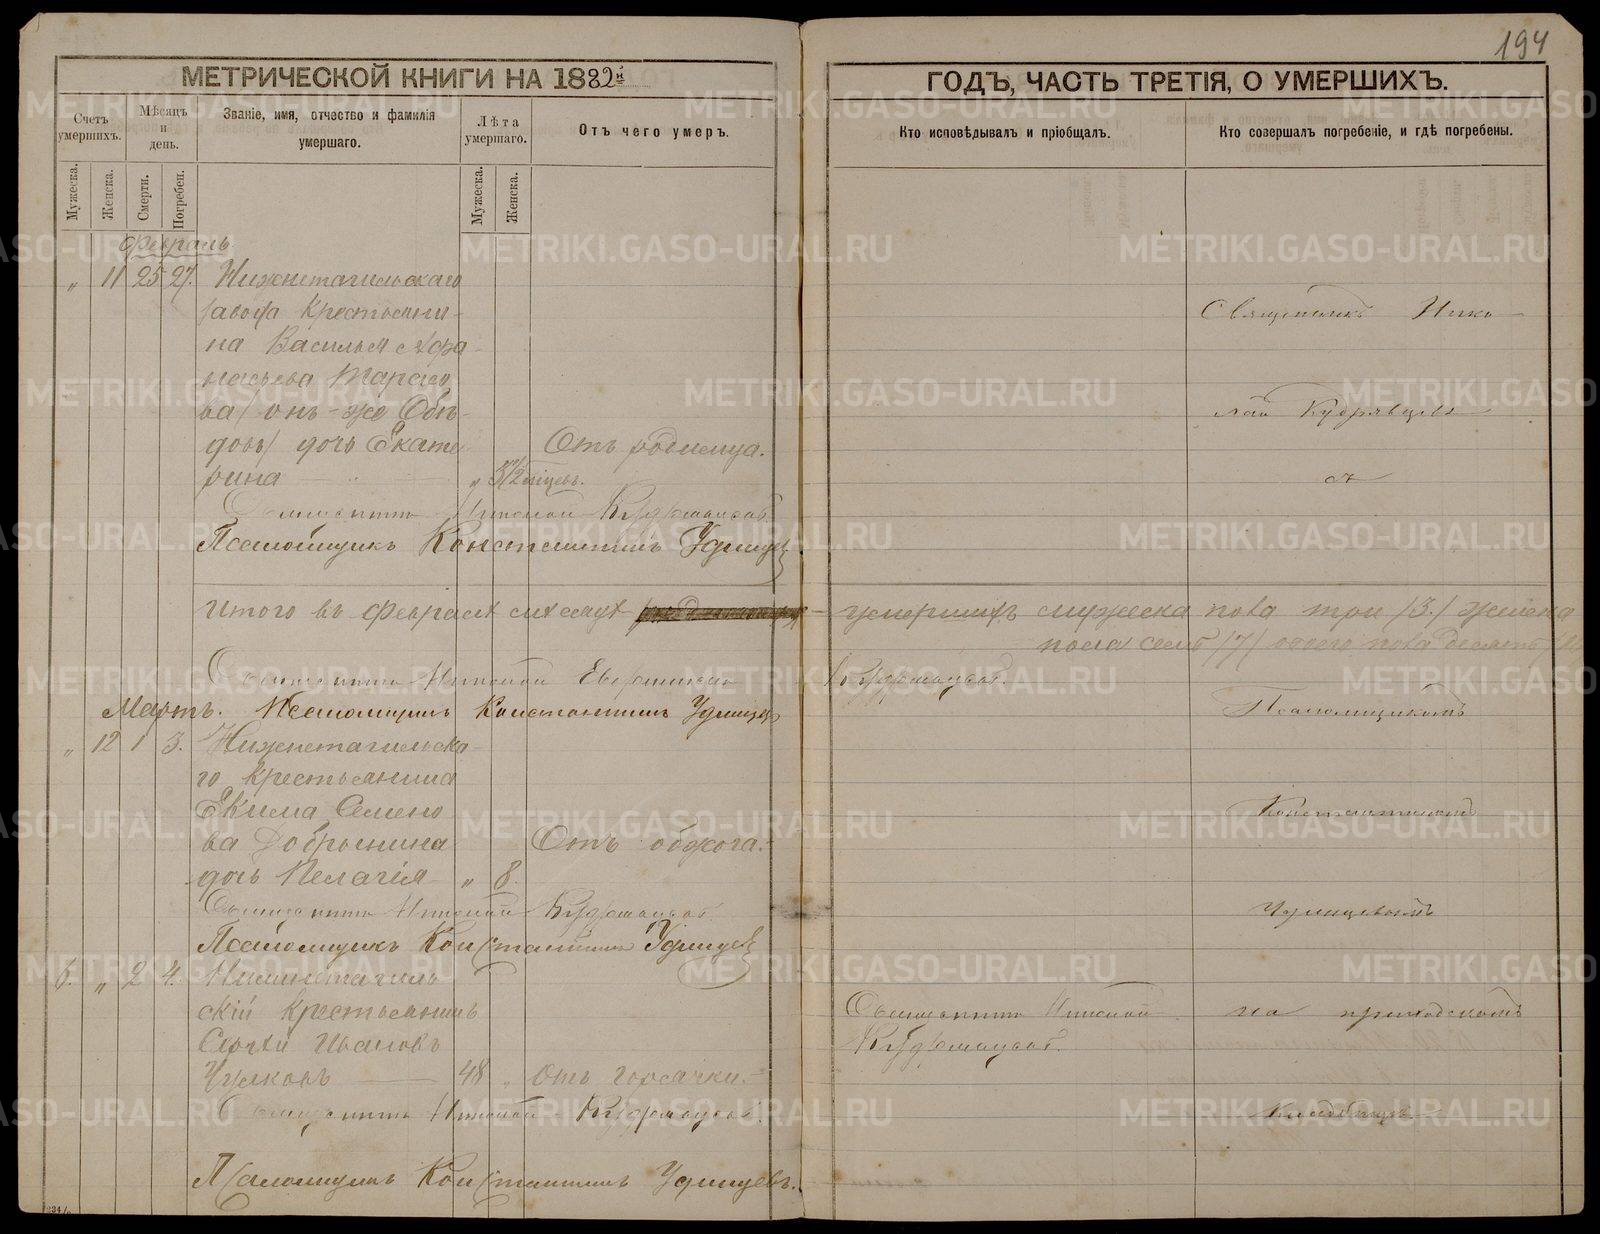 194
МЕТРИЧЕСКОЙ КНИГИ НА 1882й
ГОДЪ, ЧАСТЬ ТРЕТІЯ, О УМЕРШИХЪ.
Счетъ умершихъ.
Мѣсяцъ и день.
Званіе, имя, отчество и фамилія умершаго.
Лѣта умершаго.
Отъ чего умеръ.
Кто исповѣдывалъ и пріобщалъ.
Кто совершалъ погребеніе, и гдѣ погребены.
Мужеска.
Женска.
Смерти.
Погребен.
Мужеска.
Женска.
Февраль
„ 11 25 27. Нижнетагильскаго
завода Крестьяни-
на Василья Афа-
насьева Тарасо
ва /онъ-же Обѣ-
довъ/ дочь Екате
рина „ 3 1/2 мѣсяц. Отъ родимца.
Священникъ Николай Кудрявцевъ
Псаломщикъ Константинъ Удинцевъ
Священникъ Нико-
лай Кудрявцевъ
съ
Итого въ Февралѣ мѣсяцѣ умершихъ мужеска пола три /3./ женска
пола семь /7/ обоего пола десять /10
Священникъ Николай Кудрявцевъ.
Мартъ. Псаломщикъ Константинъ Удинцевъ
Псаломщикомъ
„ 12 1 3. Нижнетагильска-
го крестьянина
Екима Семено
ва Добрынина
дочь Пелагія „ 8. Отъ обжога.
Константиномъ
Священникъ Николай Кудрявцевъ
Удинцевымъ
Псаломщикъ Константинъ Удинцевъ
6. „ 2 4. Нижнетагиль
скій крестьянинъ
Сергѣй Ивановъ
Чулковъ 48 „ Отъ горячки.
Священникъ Николай
Кудрявцевъ.
на приходскомъ
Священникъ Николай Кудрявцевъ
кладбищѣ
Псаломщикъ Константинъ Удинцевъ.
METRIKI.GASO-URAL.RU